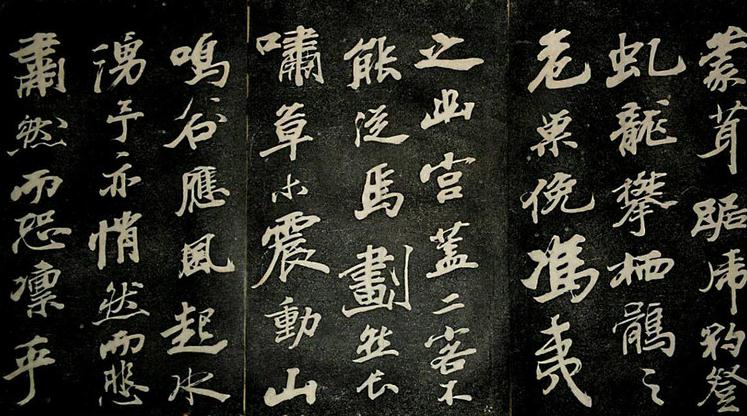 蒙茸踞虎豹登
虬龍攀栖鶻之
危巢俛馮夷
之幽宮蓋二客不
能從焉劃然長
嘯草木震動山
鳴谷應風起水
湧予亦悄然而悲
肅然而恐凛乎